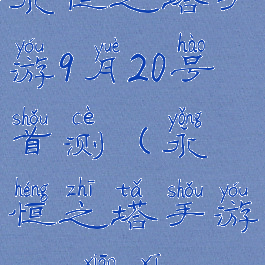 永恒之塔手
yóu yuè hào
游9月20号
shǒu cè yǒng
首测(永
héng zhī tǎ shǒu yóu
恒之塔手游
xiāo xī